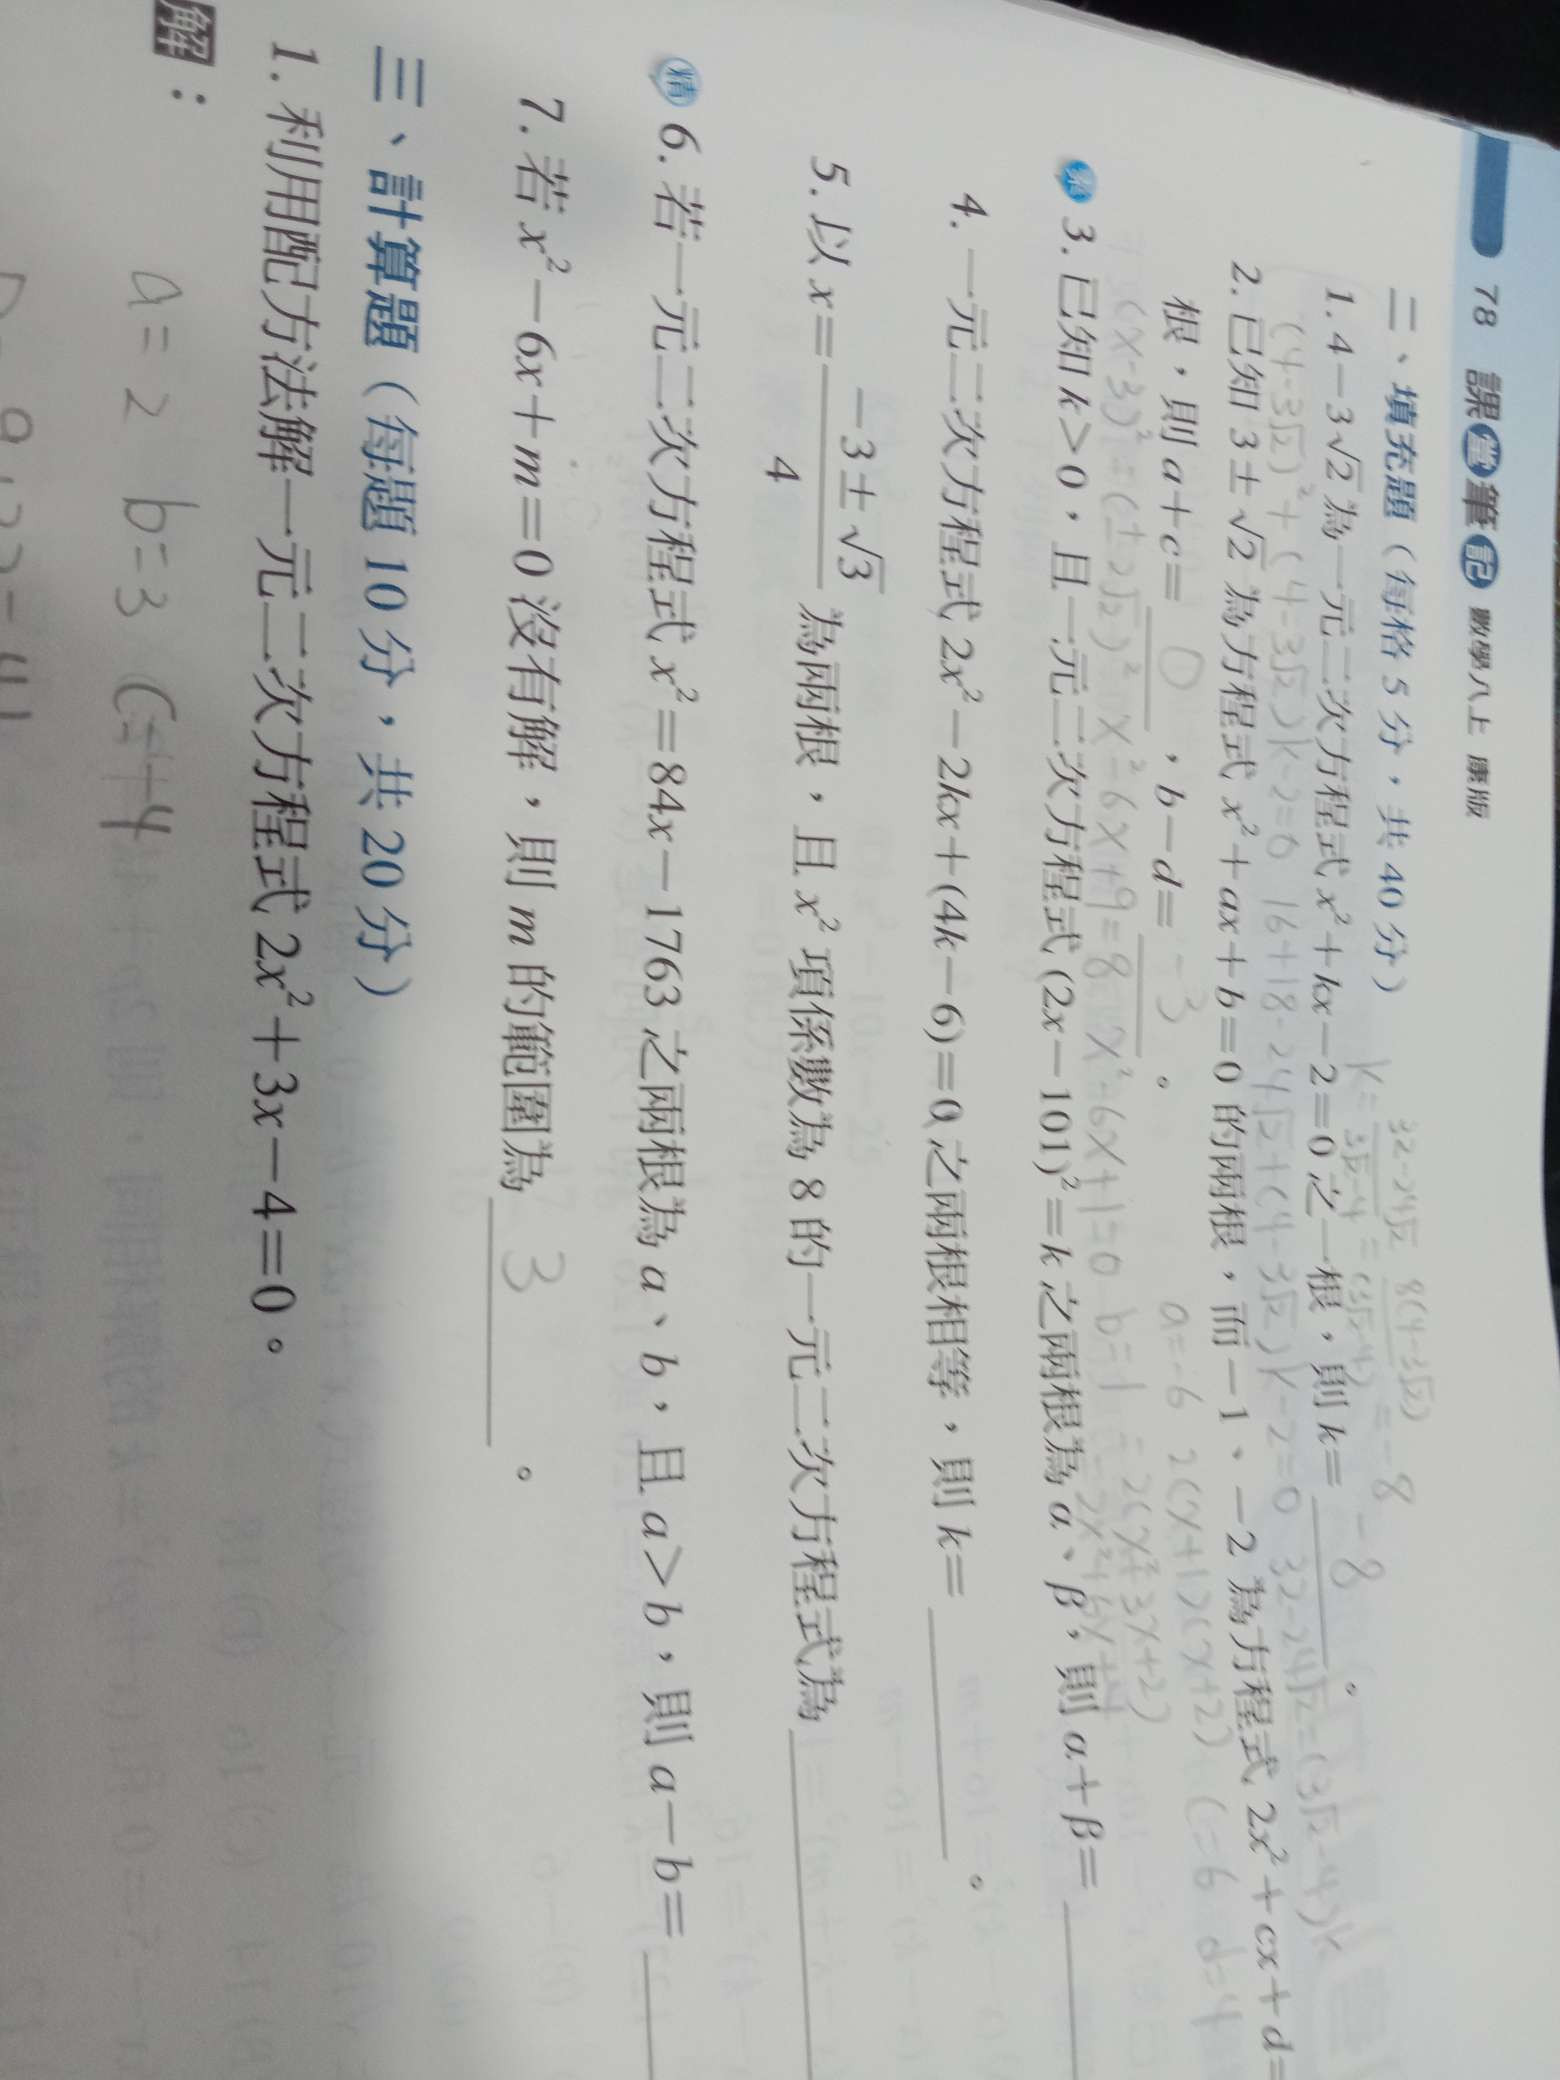 78 課堂筆記 數學八上 康版
二、填充題（每格 5 分，共 40 分）
1. 4－3√2 為一元二次方程式 x²＋kx－2＝0 之一根，則 k＝ －8 。
2. 已知 3±√2 為方程式 x²＋ax＋b＝0 的兩根，而 －1、－2 為方程式 2x²＋cx＋d＝
根，則 a＋c＝ 0 ，b－d＝ －3 。
a=-6 2(x+1)(x+2) c=6 d=4
3. 已知 k＞0，且一元二次方程式 (2x－101)²＝k 之兩根為 α、β，則 α＋β＝
4. 一元二次方程式 2x²－2kx＋(4k－6)＝0 之兩根相等，則 k＝ 。
5. 以 x＝(－3±√3)/4 為兩根，且 x² 項係數為 8 的一元二次方程式為
精 6. 若一元二次方程式 x²＝84x－1763 之兩根為 a、b，且 a＞b，則 a－b＝
7. 若 x²－6x＋m＝0 沒有解，則 m 的範圍為 3 。
三、計算題（每題 10 分，共 20 分）
1. 利用配方法解一元二次方程式 2x²＋3x－4＝0。
解：
a=2 b=3